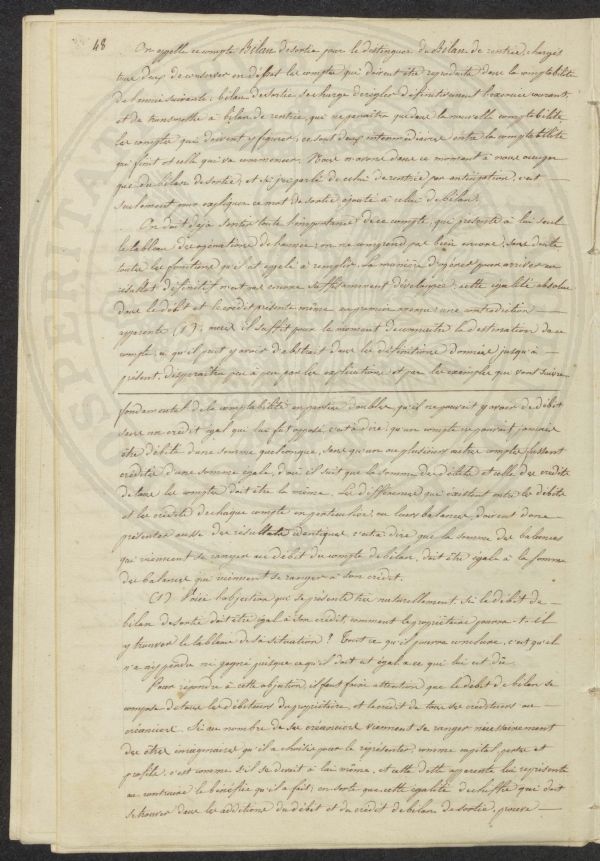 48
On appelle ce compte Bilan de sortie pour le distinguer du Bilan de rentrée; chargés
tous deux de conserver en dépôt les comptes qui doivent être reproduits dans la comptabilité
de l'année suivante; bilan de sortie se charge de régler définitivement l'exercice courant,
et de transmettre à bilan de rentrée, qui ne paraîtra que dans la nouvelle comptabilité
les comptes qui doivent y figurer; ce sont deux intermédiaires entre la comptabilité
qui finit et celle qui va commencer. Nous n'avons dans ce moment à nous occuper
que du bilan de sortie, et si j'ai parlé de celui de rentrée par anticipation, c'est
seulement pour expliquer ce mot de sortie ajouté à celui de bilan.
On doit déjà sentir toute l'importance de ce compte, qui présente à lui seul
le tableau des opérations de l'année; on ne comprend pas bien encore, sans doute
toutes les fonctions qu'il est appelé à remplir. La manière d'opérer pour arriver au
résultat définitif n'est pas encore suffisamment développée; cette égalité absolue
dans le débit et le crédit présente même au premier aperçu une contradiction
apparente (1); mais il suffit pour le moment de connaître la destination de ce
compte; ce qu'il peut y avoir d'abstrait dans les définitions données jusqu'à
présent, disparaîtra peu à peu par les explications et par les exemples qui vont suivre.
fondamental de la comptabilité en parties doubles qu'il ne pouvait y avoir de débit
sans un crédit égal qui lui fut opposé, c'est à dire; qu'un compte ne pouvait jamais
être débité d'une somme quelconque, sans qu'un ou plusieurs autres comptes fussent
crédités d'une somme égale, d'où il suit que la somme des débits et celle des crédits
de tous les comptes doit être la même. Les différences qui existent entre les débits
et les crédits de chaque compte en particulier, ou leurs balances, doivent donc
présenter aussi des résultats identiques c'est à dire que la somme des balances
qui viennent se ranger au débit du compte de bilan, doit être égale à la somme
des balances qui viennent se ranger à son crédit.
(1) Voici l'objection qui se présente très naturellement. Si le débit de
bilan de sortie doit être égal à son crédit, comment le propriétaire pourra-t-il
y trouver le tableau de sa situation? Tout ce qu'il pourra conclure, c'est qu'il
n'a ni perdu ni gagné puisque ce qu'il doit est égal à ce qui lui est dû.
Pour répondre à cette objection, il faut faire attention que le débit de bilan se
compose de tous les débiteurs du propriétaire, et le crédit de tous ses créditeurs ou
créanciers. Si au nombre de ses créanciers viennent se ranger nécessairement
des êtres imaginaires qu'il a choisis pour le représenter, comme capital, pertes et
profits, c'est comme s'il se devait à lui même, et cette dette apparente lui représente
au contraire le bénéfice qu'il a fait; en sorte que cette égalité de chiffres qui doit
se trouver dans les additions du débit et du crédit de bilan de sortie, prouve